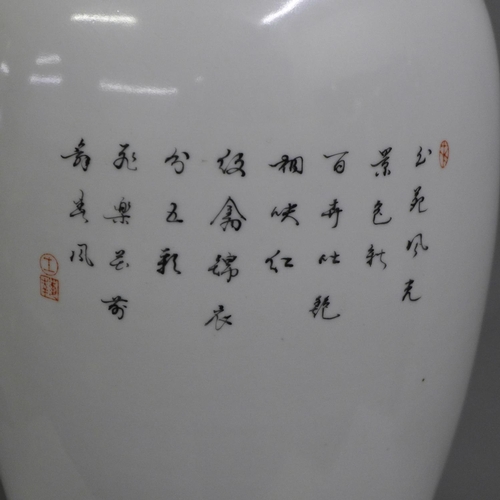 公苑风光
景色新
百卉吐艳
相映红
绞禽锦衣
分五彩
飞樂花前
舞春风